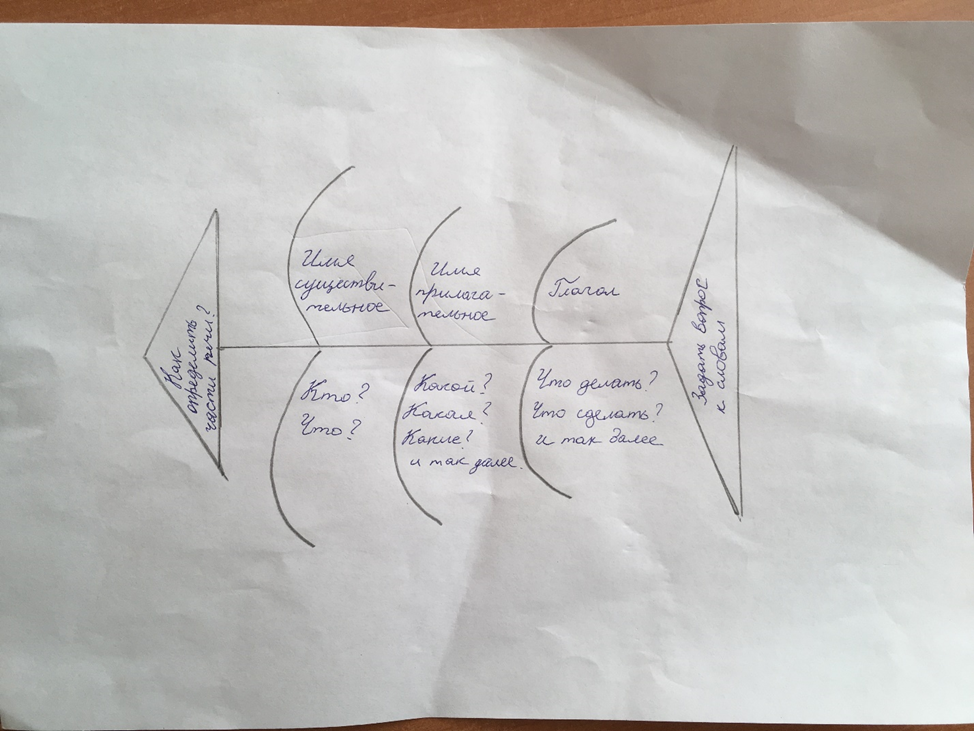 Как
определить
части речи?
Имя
существи-
тельное
Имя
прилага-
тельное
Глагол
Кто?
Что?
Какой?
Какая?
Какие?
и так далее.
Что делать?
Что сделать?
и так далее
Задать вопрос
к словам